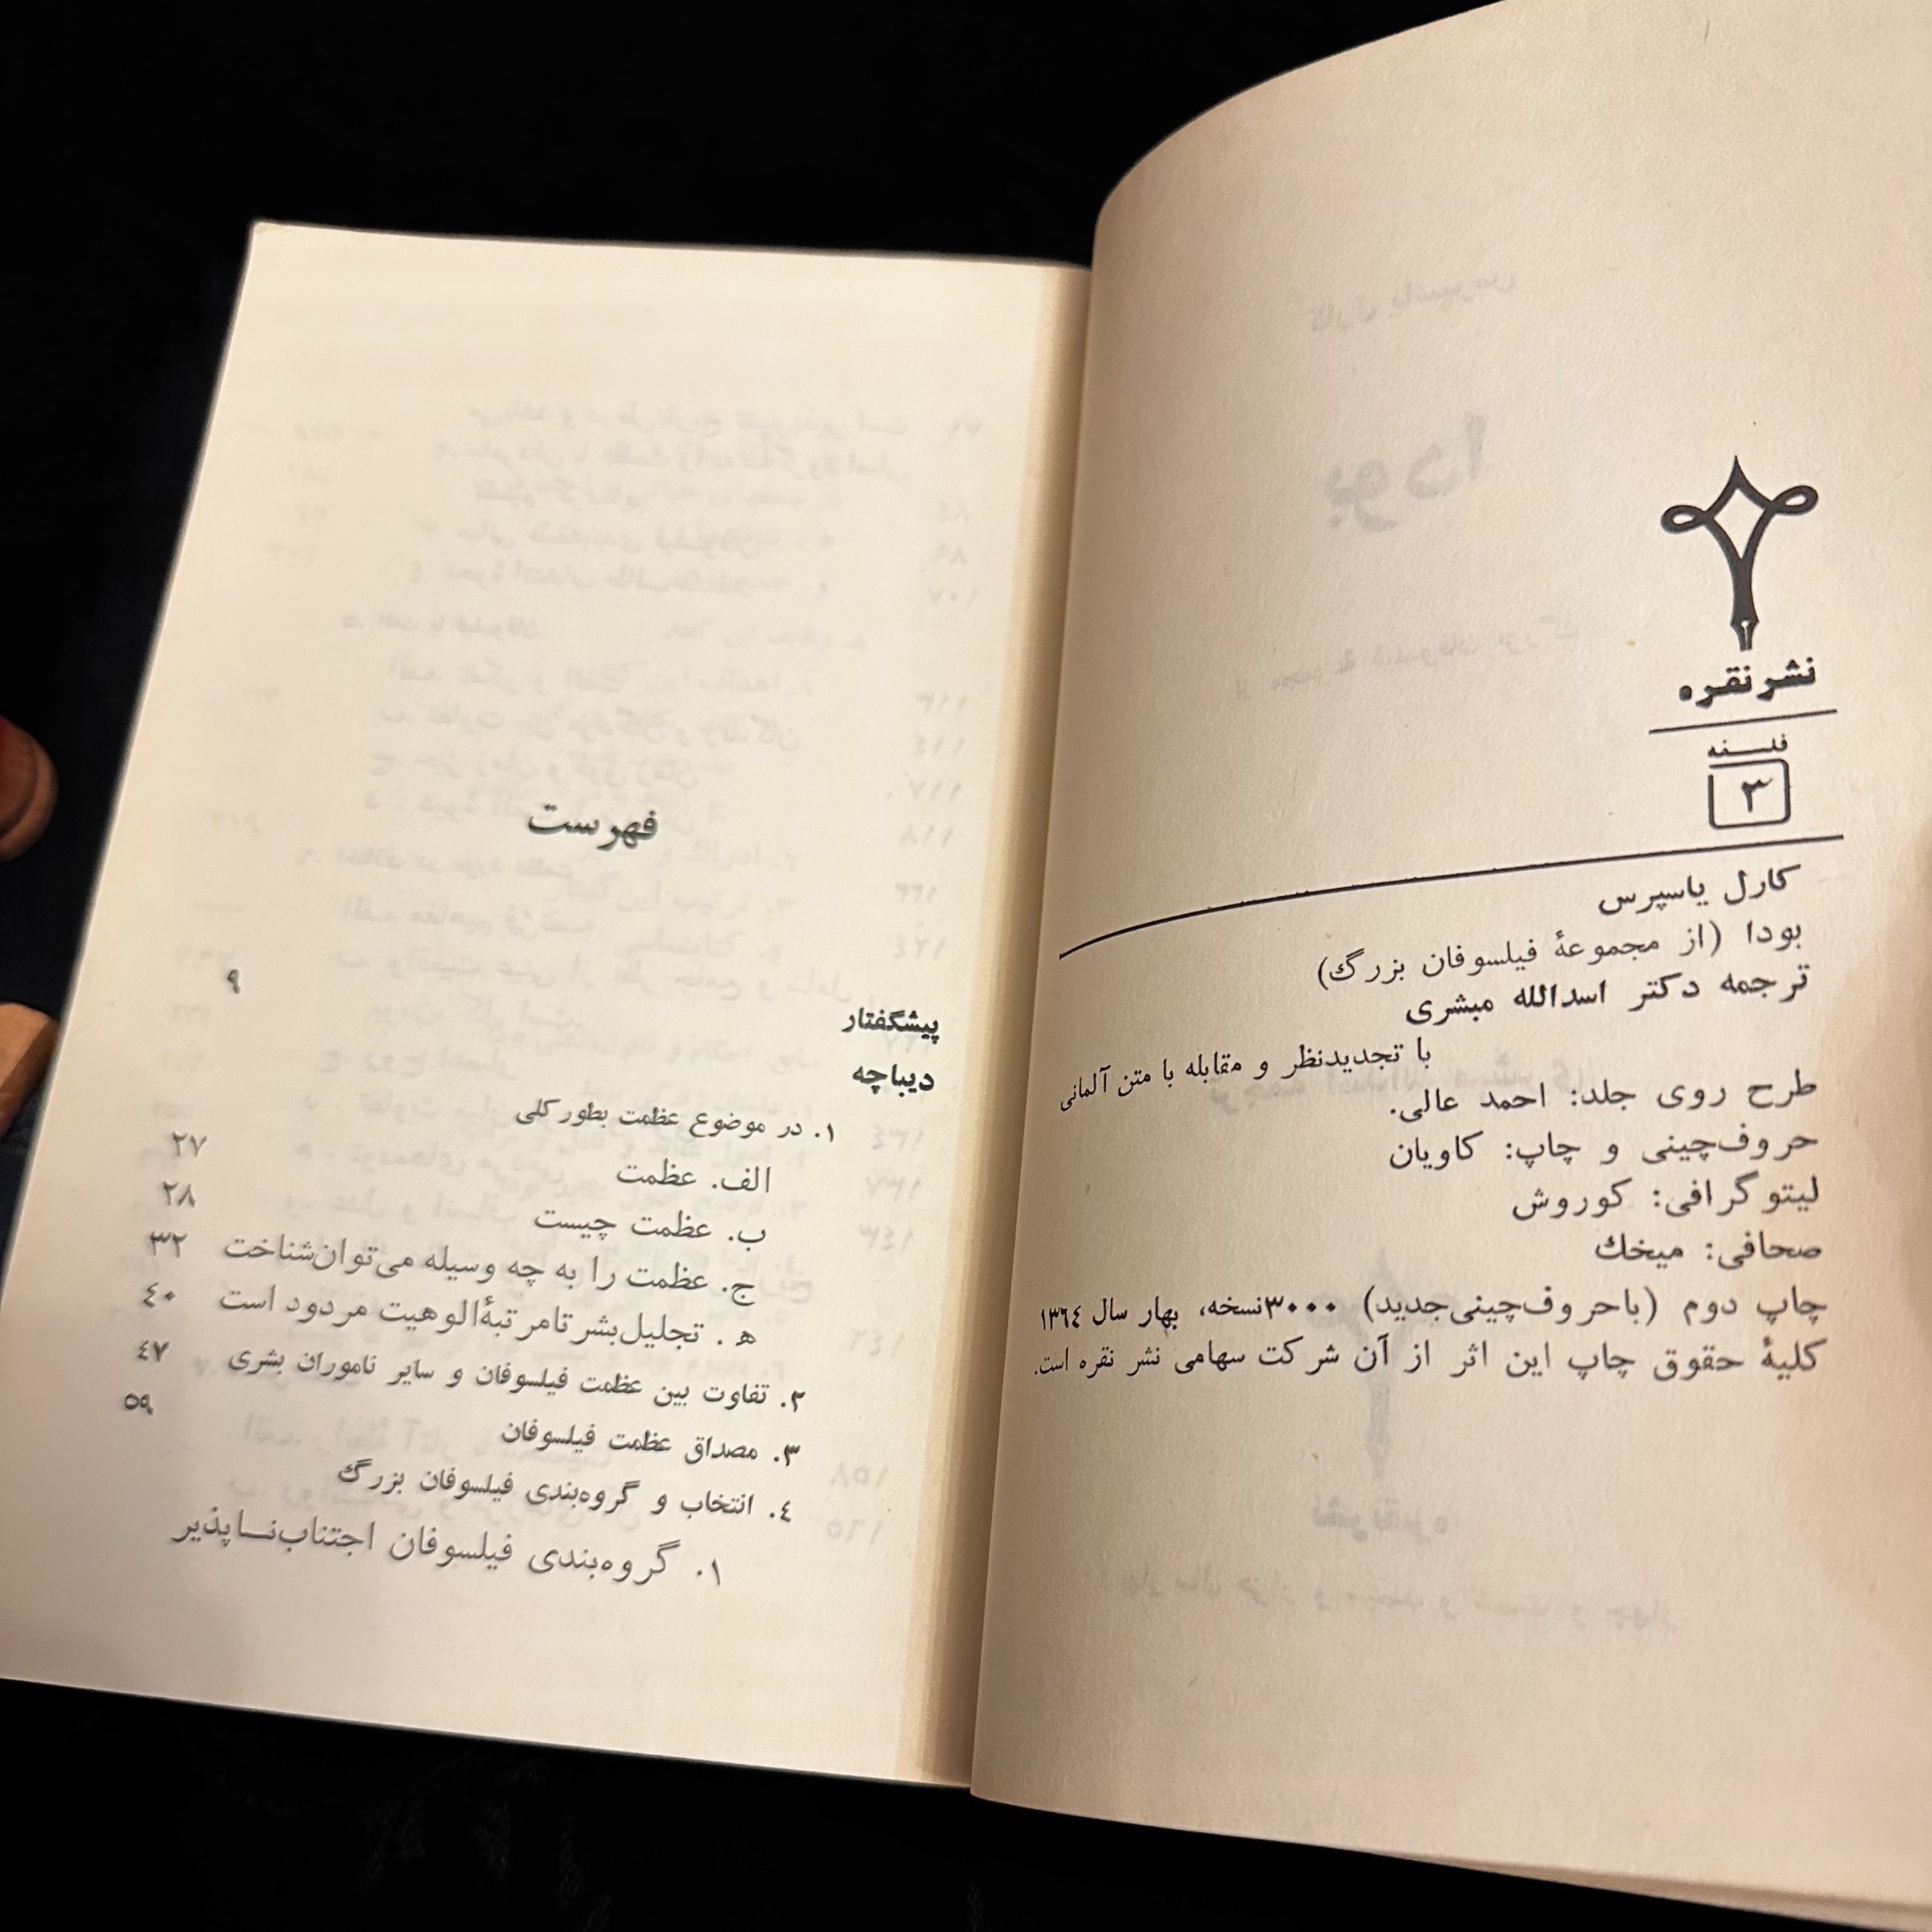 نشر نقره
فلسفه
۳
کارل یاسپرس
بودا (از مجموعهٔ فیلسوفان بزرگ)
ترجمه دکتر اسدالله مبشری
با تجدیدنظر و مقابله با متن آلمانی
طرح روی جلد: احمد عالی.
حروف‌چینی و چاپ: کاویان
لیتوگرافی: کوروش
صحافی: میخک
چاپ دوم (باحروف‌چینی‌جدید) ۳۰۰۰نسخه، بهار سال ۱۳۶۴
کلیهٔ حقوق چاپ این اثر از آن شرکت سهامی نشر نقره است.
فهرست
پیشگفتار ۹
دیباچه
۱. در موضوع عظمت بطورکلی
الف. عظمت ۲۷
ب. عظمت چیست ۲۸
ج. عظمت را به چه وسیله می‌توان‌شناخت ۳۲
ه. تجلیل‌بشر تا مرتبهٔ‌الوهیت مردود است ۴۰
۲. تفاوت بین عظمت فیلسوفان و سایر ناموران بشری ۴۷
۳. مصداق عظمت فیلسوفان ۵۹
۴. انتخاب و گروه‌بندی فیلسوفان بزرگ
۱. گروه‌بندی فیلسوفان اجتناب‌نـاپذیر